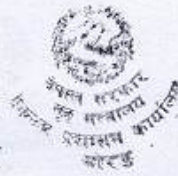 नेपाल सरकार
गृह मन्त्रालय
जिल्ला प्रशासन कार्यालय
मोरङ